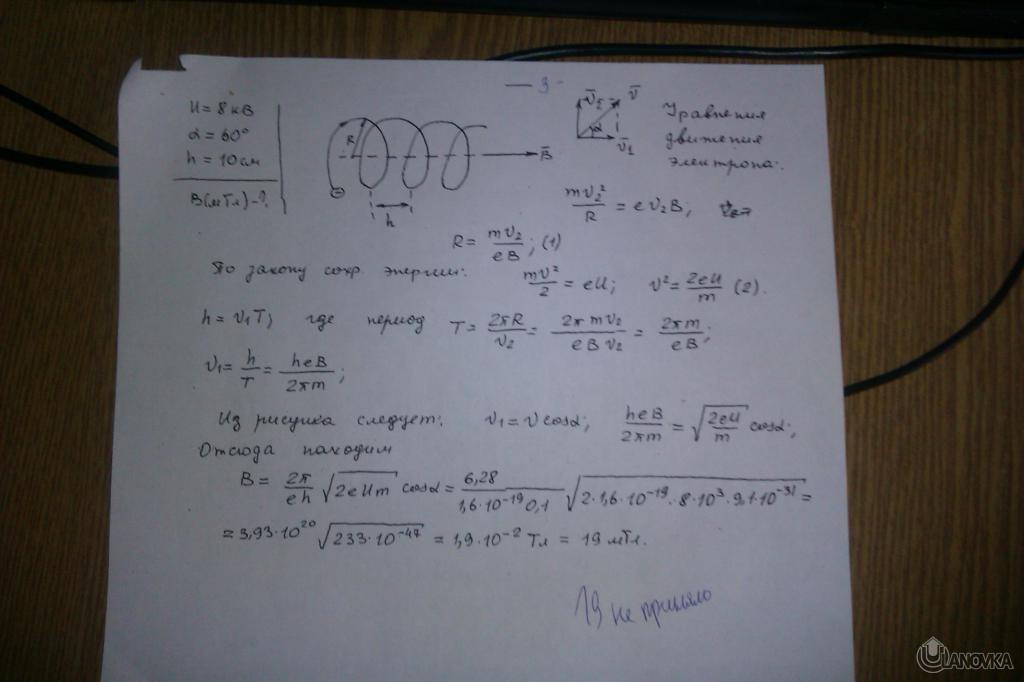 — 3 -
U = 8 кВ
α = 60°
h = 10 см
B(мТл) - ?
R
h
B̅
v̅₂ v̅
α
v̅₁
Уравнения
движения
электрона:
mv₂²/R = ev₂B;
R = mv₂/eB; (1)
По закону сохр. энергии: mv²/2 = eU; v² = 2eU/m (2).
h = v₁T; где период T = 2πR/v₂ = 2πmv₂/eBv₂ = 2πm/eB;
v₁ = h/T = heB/2πm;
Из рисунка следует: v₁ = v cosα; heB/2πm = √(2eU/m) cosα;
Отсюда находим
B = 2π/eh √(2eUm) cosα = 6,28/(1,6·10⁻¹⁹ 0,1) √(2·1,6·10⁻¹⁹·8·10³·9,1·10⁻³¹) =
= 3,93·10²⁰ √(233·10⁻⁴⁷) = 1,9·10⁻² Тл = 19 мТл.
19 не приняло
ULANOVKA